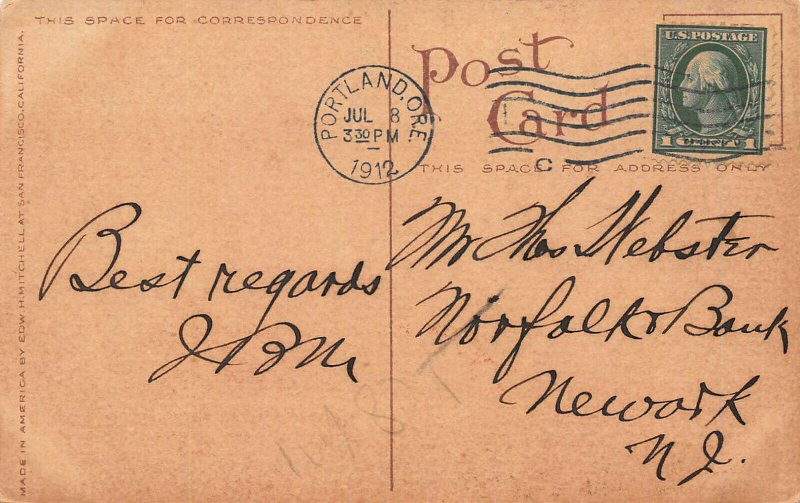 THIS SPACE FOR CORRESPONDENCE
Post
Card
PORTLAND, ORE.
JUL 8
3 30 PM
1912
C
U.S. POSTAGE
1 CENT 1
THIS SPACE FOR ADDRESS ONLY
MADE IN AMERICA BY EDW. H. MITCHELL AT SAN FRANCISCO, CALIFORNIA.
Best regards
JBM
Mr Thos Webster
Norfolk & Bank
Newark
N.J.